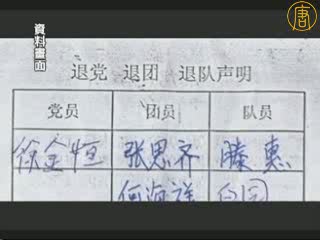 資料畫面
唐
退党 退团 退队声明
党员 团员 队员
徐金恒 张思齐 滕惠
何海祥